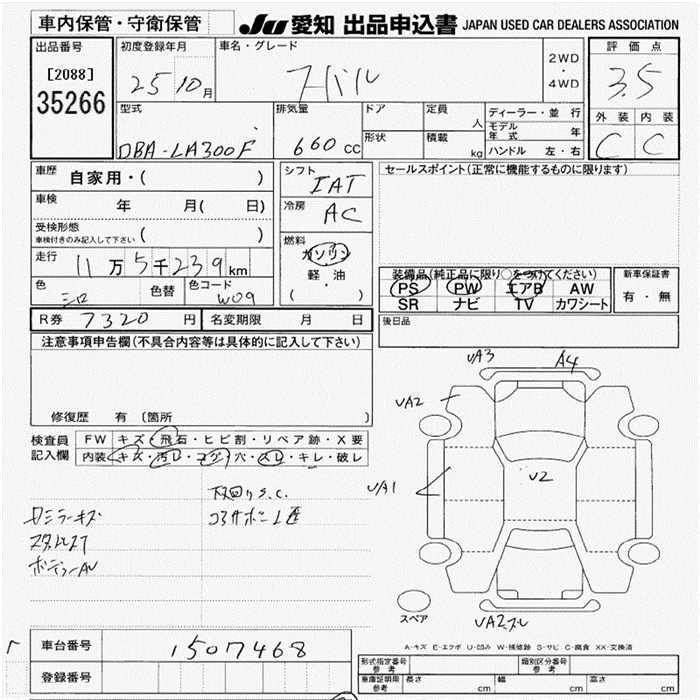 車内保管・守衛保管
JU 愛知 出品申込書 JAPAN USED CAR DEALERS ASSOCIATION
出品番号
[2088]
35266
初度登録年月
25 10月
車名・グレード
スバル
2WD
・
4WD
評価点
3.5
外装 内装
C C
型式
DBA-LA300F
排気量
660 cc
ドア
形状
定員 人
積載 kg
ディーラー・並行
モデル年式 年
ハンドル 左・右
車歴
自家用・( )
車検 年 月( 日)
受検形態
車検付きのみ記入して下さい ( )
走行
11万5千239km
色 シロ 色替
色コード W09
シフト IAT
冷房 AC
燃料
ガソリン
軽・油
( ・ )
セールスポイント(正常に機能するものに限ります)
装備品(純正品に限り○をつけてください)
PS PW エアB AW
SR ナビ TV カワシート
新車保証書
有・無
R券 7320 円 名変期限 月 日
後日品
注意事項申告欄(不具合内容等は具体的に記入して下さい)
修復歴 有 〔箇所 〕
検査員記入欄
FW キズ・飛石・ヒビ割・リペア跡・X要
内装 キズ・汚レ・コゲ・穴・スレ・キレ・破レ
UA3
A4
UA2
UA1
U2
UA2スレ
スペア
A-キズ E-エクボ U-凹み W-補修跡 S-サビ C-腐食 XX-交換済
車台番号 1507468
登録番号
型式指定番号 参考
類別区分番号 参考
車庫証明用 参考
長さ cm 幅 cm 高さ cm